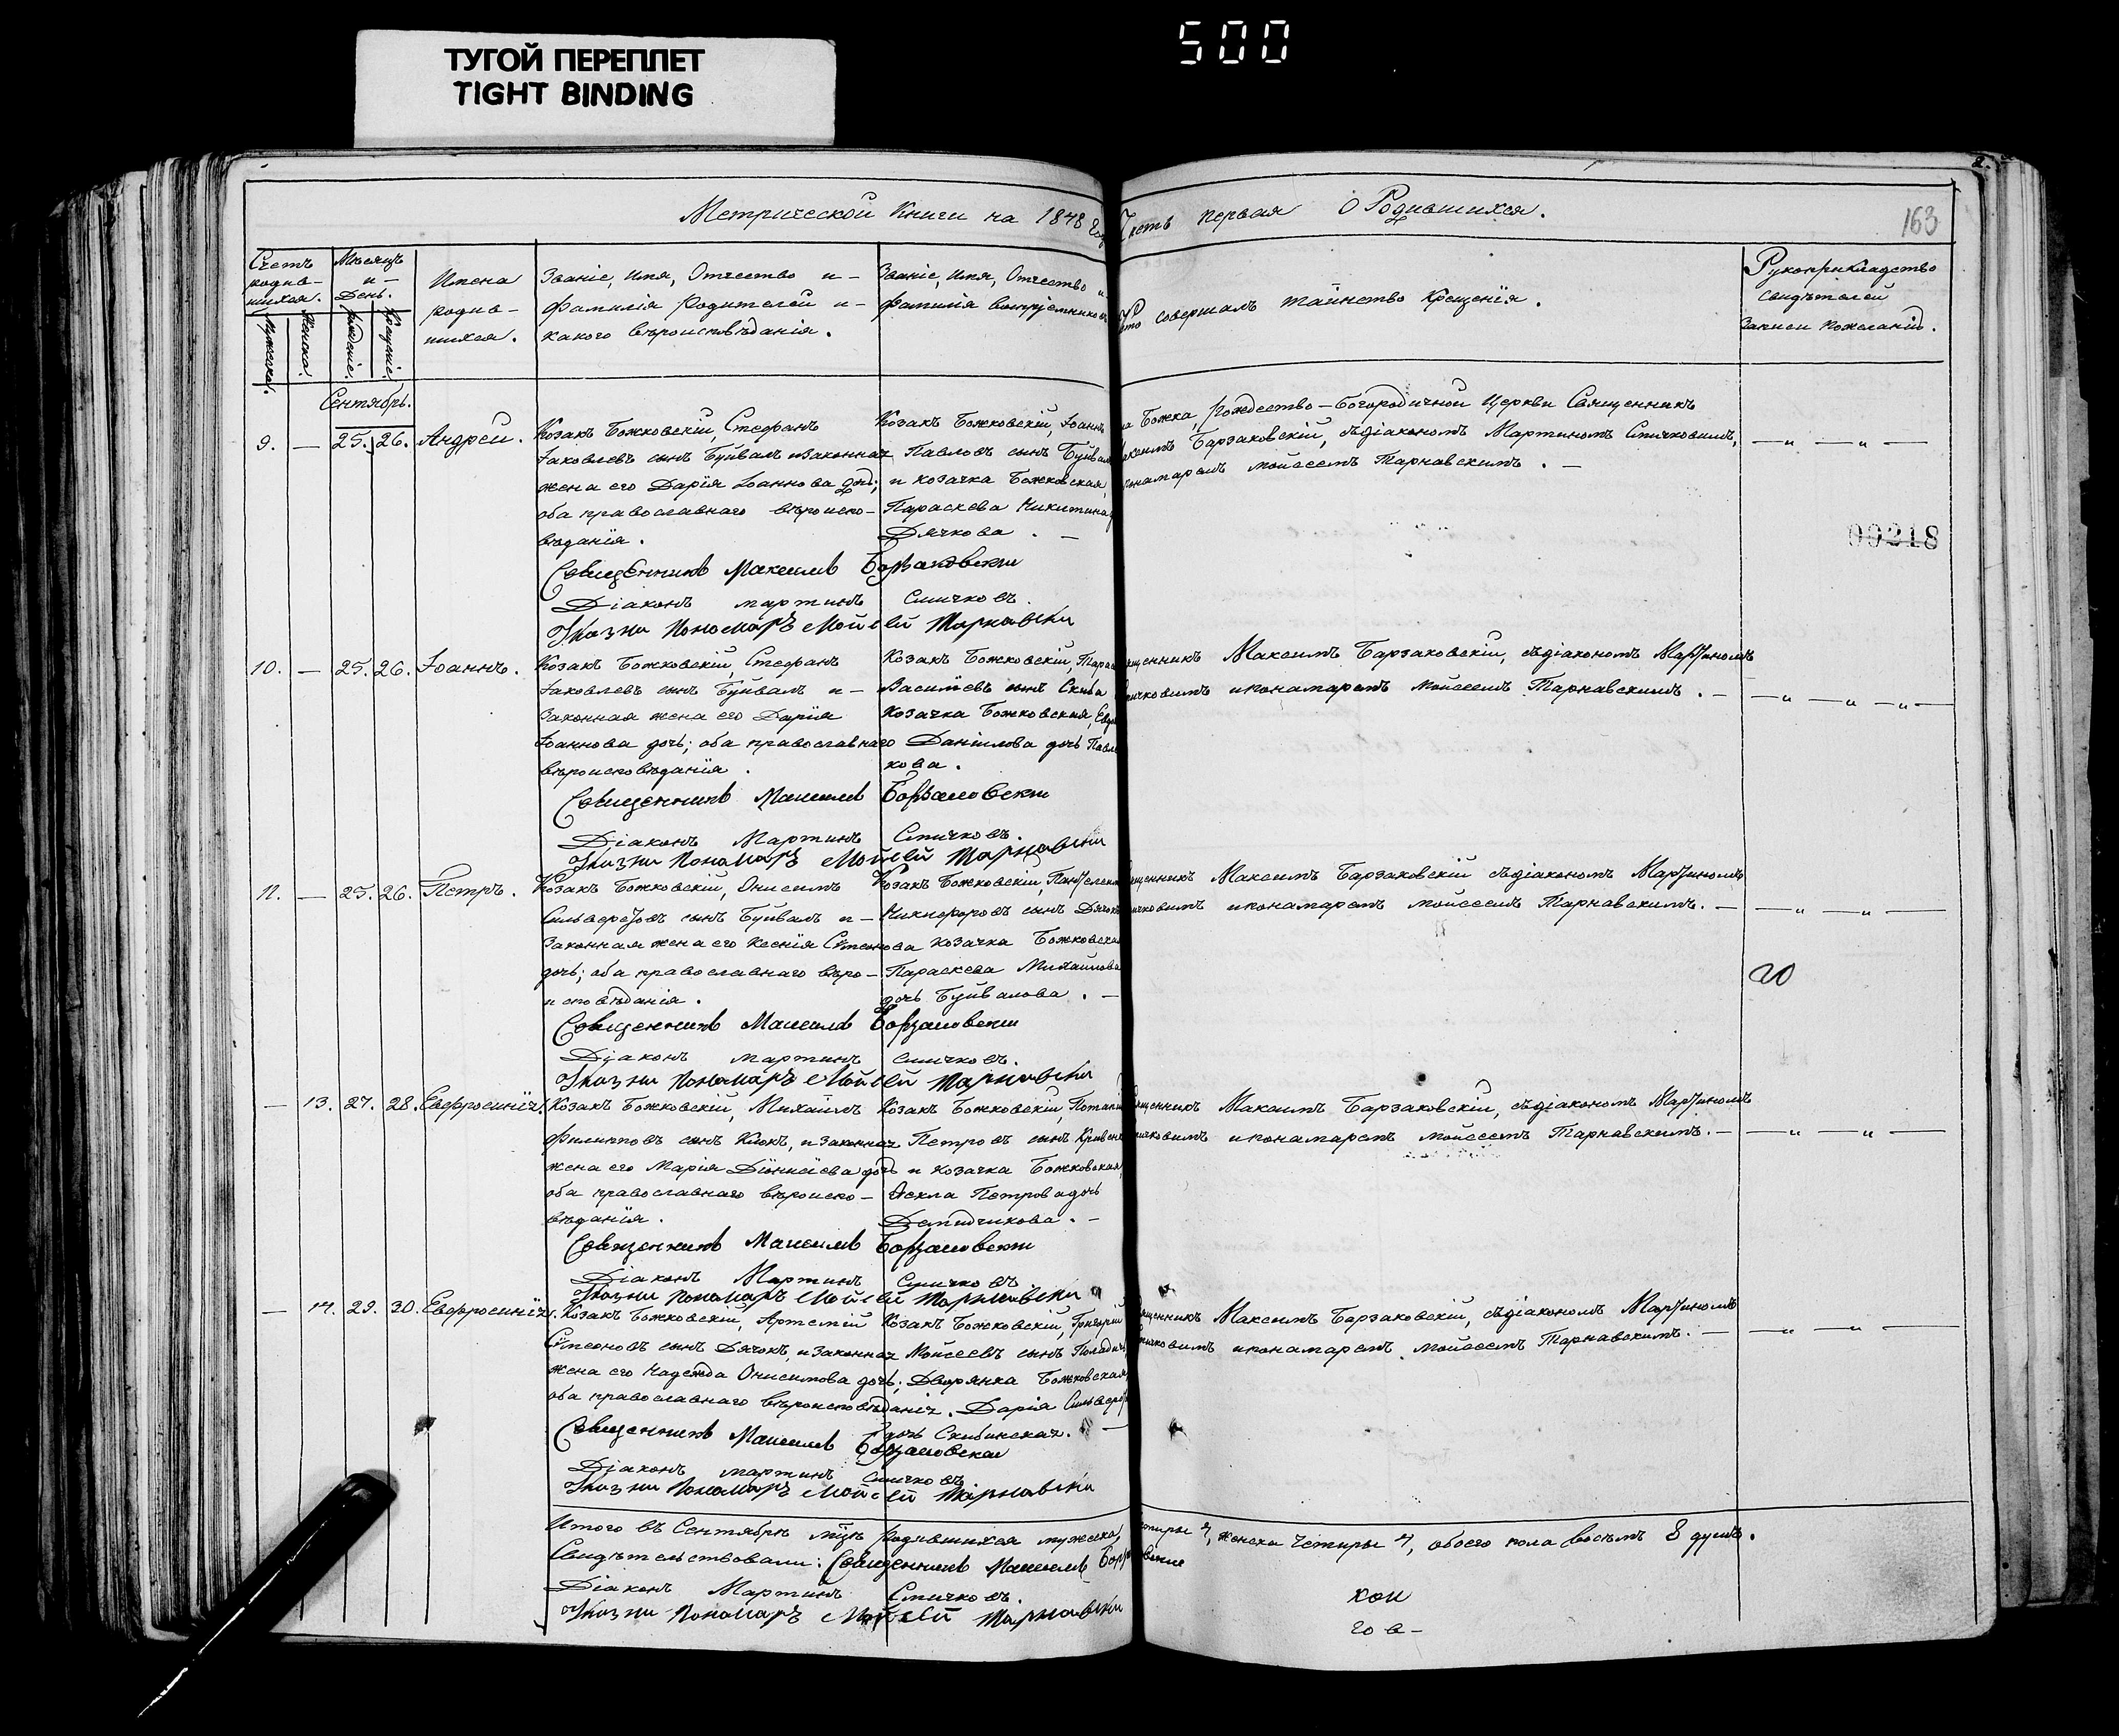 500
ТУГОЙ ПЕРЕПЛЕТ
TIGHT BINDING
2.
Метрической Книги на 1848 год Часть первая О Родившихся.
163
Счетъ родив- шихся.
Мужеска.
Женска.
Мѣсяцъ и- День.
рожденіе.
Крещеніе.
Имена
родив-
шихся.
Званіе, Имя, Отчество и-
фамилія Родителей и-
какого вѣроисповѣданія.
Званіе, Имя, Отчество и-
фамилія воспріемниковъ
Кто совершалъ таинство крещенія.
Рукоприкладство
свидѣтелей
записи по желанію.
Сентябрь.
9. — 25. 26. Андрей.
Козакъ Божковскій, Стефанъ
Іаковлевъ сынъ Буйвалъ и законная
жена его Дарія Іоаннова дочь;
оба православнаго вѣроиспо-
вѣданія.
Козакъ Божковскій, Іоаннъ
Павловъ сынъ Буйвалъ
и козачка Божковская,
Параскева Никитина
Дячкова. —
Божка, Рождество-Богородичной Церкви Священникъ
Максимъ Барзаковскій, съ діакономъ Мартиномъ Смичковимъ,
понамаремъ Моисеемъ Тарнавскимъ. —
— „ — „ —
00218
Священникъ Максимъ Борзаковски
Діаконъ Мартинъ Смичковъ.
Пономарь Мойсей Тарнавски
10. — 25. 26. Іоаннъ.
Козакъ Божковскій, Стефанъ
Іаковлевъ сынъ Буйвалъ и-
законная жена его Дарія
Іоаннова дочь; оба православнаго
вѣроисповѣданія.
Козакъ Божковскій, Тарас
Василіевъ сынъ Скиба
Козачка Божковская,
Даніилова дочь Павли-
кова.
Священникъ Максимъ Барзаковскій, съ діакономъ Мартиномъ
Смичковимъ и понамаремъ Моисеемъ Тарнавскимъ. —
— „ — „ — „ —
Священникъ Максимъ Борзаковски
Діаконъ Мартинъ Смичковъ.
Пономарь Мойсей Тарнавски
11. — 25. 26. Петръ.
Козакъ Божковскій, Онисимъ
Сильвестровъ сынъ Буйвалъ и-
законная жена его Ксенія Симеонова
дочь; оба православнаго вѣро-
исповѣданія.
Козакъ Божковскій, Пантелеим
Никифоровъ сынъ Дячокъ
козачка Божковская
Параскева Михайлова
дочь Буйвалова. —
Священникъ Максимъ Барзаковскій съ діакономъ Мартиномъ
Смичковимъ и понамаремъ Моисеемъ Тарнавскимъ. —
— „ — „ —
20
Священникъ Максимъ Борзаковски
Діаконъ Мартинъ Смичковъ.
Пономарь Мойсей Тарнавски
— 13. 27. 28. Евфросинія.
Козакъ Божковскій, Михаилъ
Филиповъ сынъ Клюкъ, и законная
жена его Марія Діонисіева дочь
оба православнаго вѣроиспо-
вѣданія.
Козакъ Божковскій, Потапій
Петровъ сынъ
и козачка Божковская,
Фекла Петрова дочь
Демидчикова. —
Священникъ Максимъ Барзаковскій, съ діакономъ Мартиномъ
Смичковимъ и понамаремъ Моисеемъ Тарнавскимъ. —
— „ — „ —
Священникъ Максимъ Борзаковски
Діаконъ Мартинъ Смичковъ
Пономарь Мойсей Тарнавски
— 14. 29. 30. Евфросинія.
Козакъ Божковскій, Артемій
Симеоновъ сынъ Дячокъ, и законная
жена его Надежда Онисимова дочь;
оба православнаго вѣроисповѣданія.
Козакъ Божковскій, Григорій
Моисеевъ сынъ
Дворянка Божковская,
Дарія Сильвестр
дочь Скибинская. —
Священникъ Максимъ Барзаковскій, съ діакономъ Мартиномъ
Смичковимъ и понамаремъ Моисеемъ Тарнавскимъ. —
— „ — „ —
Священникъ Максимъ Борзаковски
Діаконъ Мартинъ Смичковъ
Пономарь Мойсей Тарнавски
Итого въ Сентябрѣ мцѣ родившихся мужеска четыре 4, женска четыре 4, обоего пола восемъ 8 душъ.
Свидѣтельствовали: Священникъ Максимъ Борзаковски
Діаконъ Мартинъ Смичковъ.
Пономарь Мойсей Тарнавски